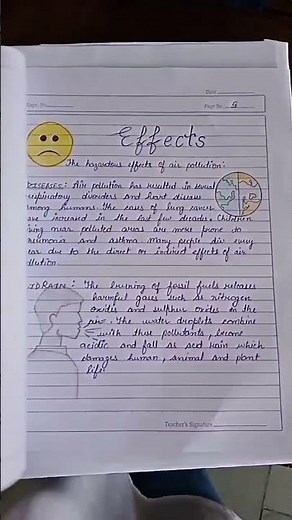 Date
Expt. No.
Page No. 9
Effects
The hazardous effects of air pollution:
DISEASES: Air pollution has resulted in several
respiratory disorders and heart disease
among humans. The cases of lung cancer
have increased in the last few decades. Children
living near polluted areas are more prone to
pneumonia and asthma. Many people die every
year due to the direct or indirect effects of air
pollution.
ID RAIN: The burning of fossil fuels releases
harmful gases such as nitrogen
oxides and sulphur oxides in the
air. The water droplets combine
with these pollutants, become
acidic and fall as acid rain which
damages human, animal and plant
life.
Teacher's Signature